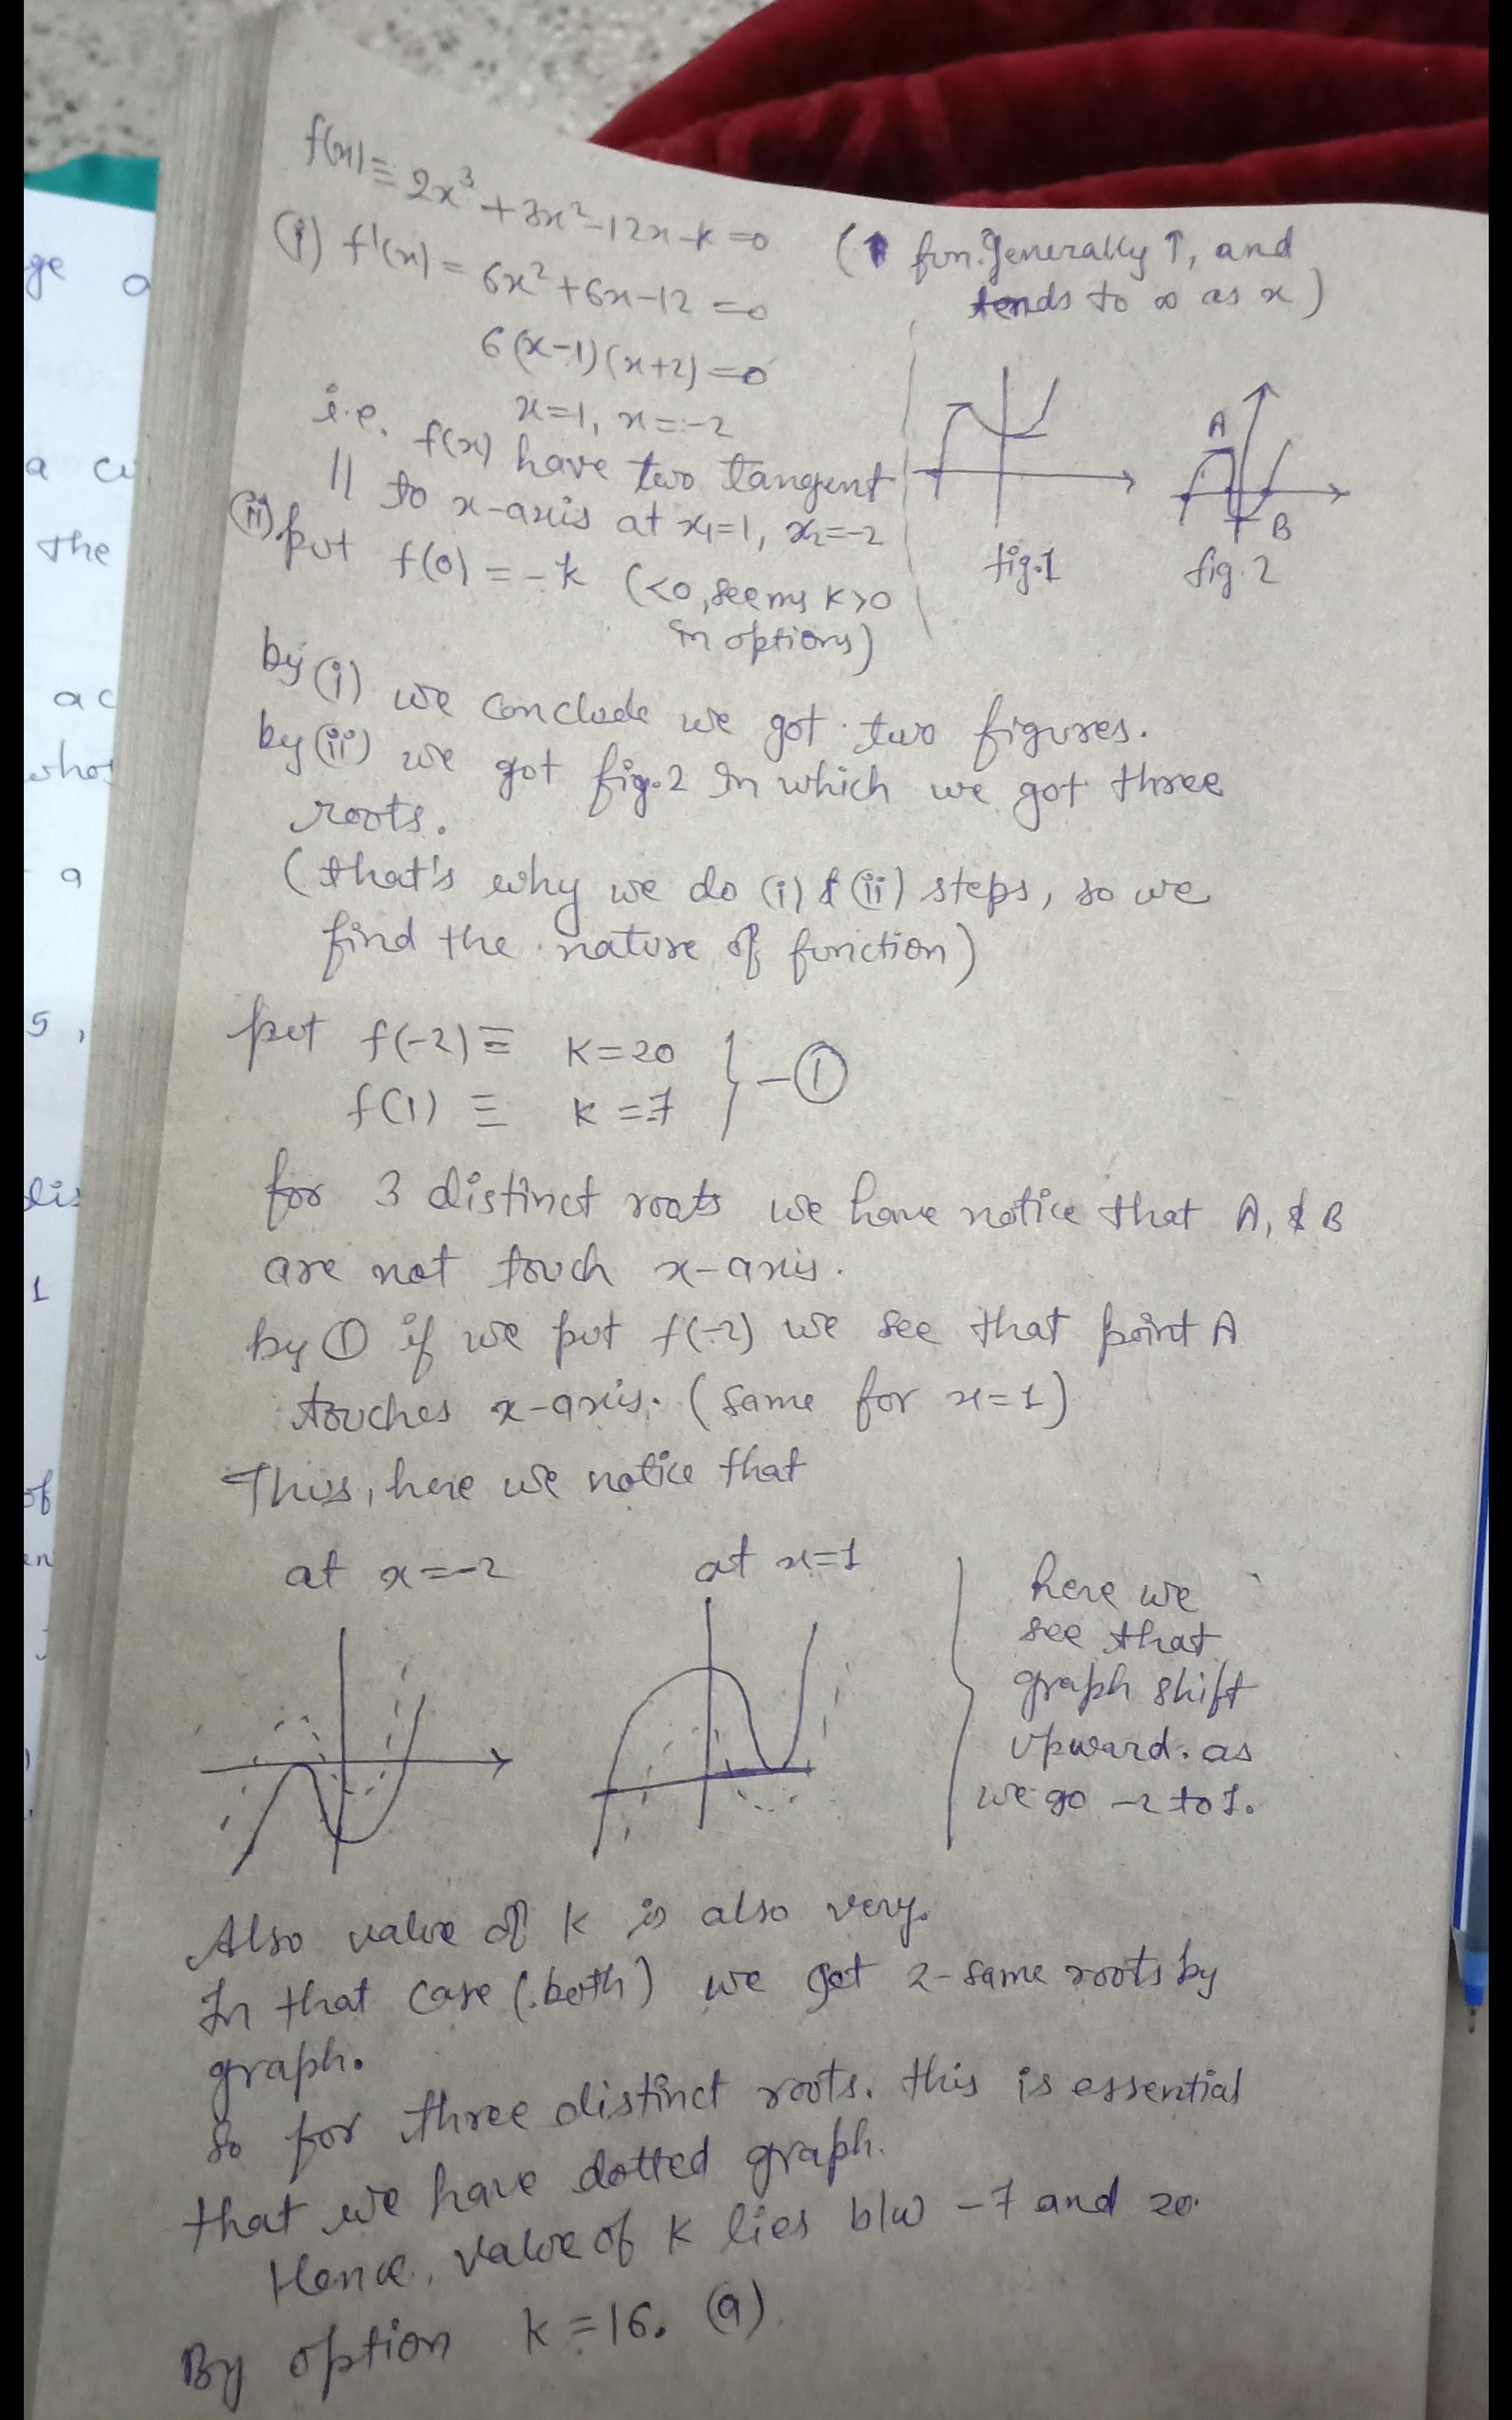 f(x) ≡ 2x³+3x²-12x-k=0
(i) f'(x) = 6x²+6x-12=0
6(x-1)(x+2)=0
x=1, x=-2
(↑ fun. generally ↑, and
tends to ∞ as x)
i.e. f(x) have two tangent
|| to x-axis at x₁=1, x₂=-2
(ii) put f(0) = -k (<0, seems k>0
in options)
A
B
fig.1
fig.2
by (i) we conclude we got two figures.
by (ii) we got fig.2 in which we got three
roots.
(that's why we do (i) & (ii) steps, so we
find the nature of function)
put f(-2) ≡ k=20
f(1) ≡ k=-7
} - ①
for 3 distinct roots we have notice that A, & B
are not touch x-axis.
by ① if we put f(-2) we see that point A
touches x-axis. (same for x=1)
Thus, here we notice that
at x=-2
at x=1
here we
see that
graph shift
upward. as
we go -2 to 1.
Also value of k is also very.
In that case (both) we get 2-same roots by
graph.
So for three distinct roots. this is essential
that we have dotted graph.
Hence, value of k lies b/w -7 and 20.
By option k=16. (a)
ge a
a ci
the
ac
a
5,
dis
1
of
en